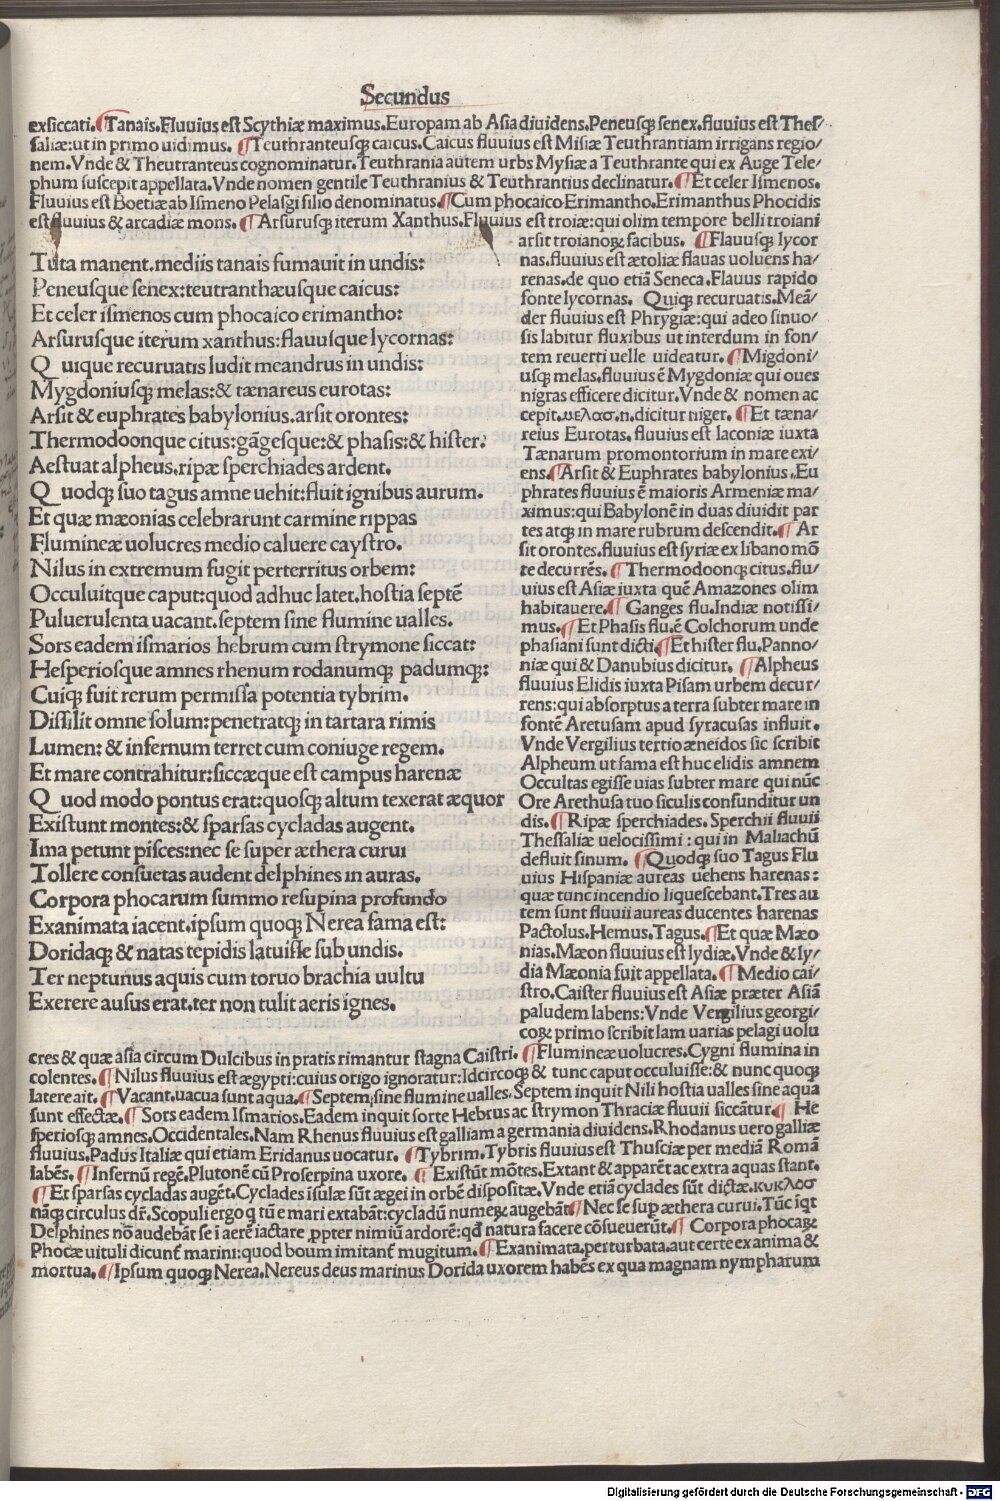 Secundus
exsiccati.¶Tanais.Fluuius est Scythiæ maximus.Europam ab Asia diuidens.Peneusqꝫ senex.fluuius est Thes/
saliæ:ut in primo uidimus. ¶Teuthranteusqꝫ caicus.Caicus fluuius est Misiæ Teuthrantiam irrigans regio/
nem.Vnde & Theutranteus cognominatur.Teuthrania autem urbs Mysiæ a Teuthrante qui ex Auge Tele/
phum suscepit appellata.Vnde nomen gentile Teuthranius & Teuthrantius declinatur.¶Et celer Ismenos.
Fluuius est Boetiæ ab Ismeno Pelasgi filio denominatus.¶Cum phocaico Erimantho.Erimanthus Phocidis
est fluuius & arcadiæ mons.¶Arsurusqꝫ iterum Xanthus.Fluuius est troiæ:qui olim tempore belli troiani
Tuta manent.mediis tanais fumauit in undis:
Peneusque senex:teutranthæusque caicus:
Et celer ismenos cum phocaico erimantho:
Arsurusque iterum xanthus:flauusque lycornas:
Q uique recuruatis ludit meandrus in undis:
Mygdoniusqꝫ melas:& tænareus eurotas:
Arsit & euphrates babylonius.arsit orontes:
Thermodoonque citus:gāgesque:& phasis:& hister:
Aestuat alpheus.ripæ sperchiades ardent.
Q uodqꝫ suo tagus amne uehit:fluit ignibus aurum.
Et quæ mæonias celebrarunt carmine rippas
Flumineæ uolucres medio caluere caystro.
Nilus in extremum fugit perterritus orbem:
Occuluitque caput:quod adhuc latet.hostia septē
Puluerulenta uacant.septem sine flumine ualles.
Sors eadem ismarios hebrum cum strymone siccat:
Hesperiosque amnes rhenum rodanumqꝫ padumqꝫ:
Cuiqꝫ fuit rerum permissa potentia tybrim.
Dissilit omne solum:penetratqꝫ in tartara rimis
Lumen: & infernum terret cum coniuge regem.
Et mare contrahitur:siccæque est campus harenæ
Q uod modo pontus erat:quosqꝫ altum texerat æquor
Existunt montes:& sparsas cycladas augent.
Ima petunt pisces:nec se super æthera curui
Tollere consuetas audent delphines in auras.
Corpora phocarum summo resupina profundo
Exanimata iacent.ipsum quoqꝫ Nerea fama est:
Doridaqꝫ & natas tepidis latuisse sub undis.
Ter neptunus aquis cum toruo brachia uultu
Exerere ausus erat.ter non tulit aeris ignes.
arsit troianoꝝ facibus. ¶Flauusqꝫ lycor
nas.fluuius est ætoliæ flauas uoluens ha/
renas.de quo etiā Seneca.Flauus rapido
fonte lycornas. Quiqꝫ recuruatis.Meā/
der fluuius est Phrygiæ:qui adeo sinuo/
sis labitur fluxibus ut interdum in fon/
tem reuerti uelle uideatur. ¶Migdoni/
usqꝫ melas.fluuius ē Mygdoniæ qui oues
nigras efficere dicitur.Vnde & nomen ac
cepit.μελασ.n.dicitur niger. ¶Et tæna/
reius Eurotas. fluuius est laconiæ iuxta
Tænarum promontorium in mare exi/
ens.¶Arsit & Euphrates babylonius.Eu
phrates fluuius ē maioris Armeniæ ma/
ximus:qui Babylonē in duas diuidit par
tes atqꝫ in mare rubrum descendit.¶ Ar
sit orontes.fluuius est syriæ ex libano mō
te decurrēs. ¶Thermodoonqꝫ citus.flu/
uius est Asiæ iuxta quē Amazones olim
habitauere.¶ Ganges flu.Indiæ notissi/
mus.¶Et Phasis flu.ē Colchorum unde
phasiani sunt dicti.¶Et hister flu.Panno/
niæ qui & Danubius dicitur. ¶Alpheus
fluuius Elidis iuxta Pisam urbem decur/
rens:qui absorptus a terra subter mare in
fontē Aretusam apud syracusas influit.
Vnde Vergilius tertio æneidos sic scribit
Alpheum ut fama est huc elidis amnem
Occultas egisse uias subter mare qui nūc
Ore Arethusa tuo siculis confunditur un
dis.¶Ripæ sperchiades. Sperchii fluuii
Thessaliæ uelocissimi : qui in Maliachū
defluit sinum. ¶Quodqꝫ suo Tagus Flu
uius Hispaniæ aureas uehens harenas:
quæ tunc incendio liquescebant.Tres au
tem sunt fluuii aureas ducentes harenas
Pactolus.Hemus.Tagus.¶Et quæ Mæo
nias.Mæon fluuius est lydiæ.Vnde & ly/
dia Mæonia fuit appellata.¶Medio cai/
stro.Caister fluuius est Asiæ præter Asiā
paludem labens:Vnde Vergilius georgi/
coꝝ primo scribit Iam uarias pelagi uolu
cres & quæ asia circum Dulcibus in pratis rimantur stagna Caistri.¶Flumineæ uolucres.Cygni flumina in
colentes.¶Nilus fluuius est ægypti:cuius origo ignoratur:Idcircoqꝫ & tunc caput occuluisse:& nunc quoqꝫ
latere ait.¶Vacant.uacua sunt aqua.¶Septem:sine flumine ualles.Septem inquit Nili hostia ualles sine aqua
sunt effectæ.¶Sors eadem Ismarios.Eadem inquit sorte Hebrus ac strymon Thraciæ fluuii siccātur.¶ He
speriosqꝫ amnes.Occidentales.Nam Rhenus fluuius est galliam a germania diuidens.Rhodanus uero galliæ
fluuius.Padus Italiæ qui etiam Eridanus uocatur. ¶Tybrim.Tybris fluuius est Thusciæ per mediā Romā
labēs.¶Infernū regē.Plutonē cū Proserpina uxore. ¶ Existūt mōtes.Extant & apparēt ac extra aquas stant.
¶Et sparsas cycladas augēt.Cyclades isulæ sūt ægei in orbē dispositæ.Vnde etiā cyclades sūt dictæ.κυκλοσ
nāqꝫ circulus dr̄.Scopuli ergo q tūc e mari extabāt:cycladū numeꝝ augebāt.¶Nec se sup æthera curui.Tūc īqt
Delphines nō audebāt se i aerē iactare ꝓpter nimiū ardorē:qđ natura facere cōsueuerūt.¶ Corpora phocaꝝ
Phocæ uituli dicunt̄ marini:quod boum imitant̄ mugitum.¶Exanimata.perturbata.aut certe ex anima &
mortua.¶Ipsum quoqꝫ Nerea.Nereus deus marinus Dorida uxorem habēs ex qua magnam nympharum
Digitalisierung gefördert durch die Deutsche Forschungsgemeinschaft - DFG